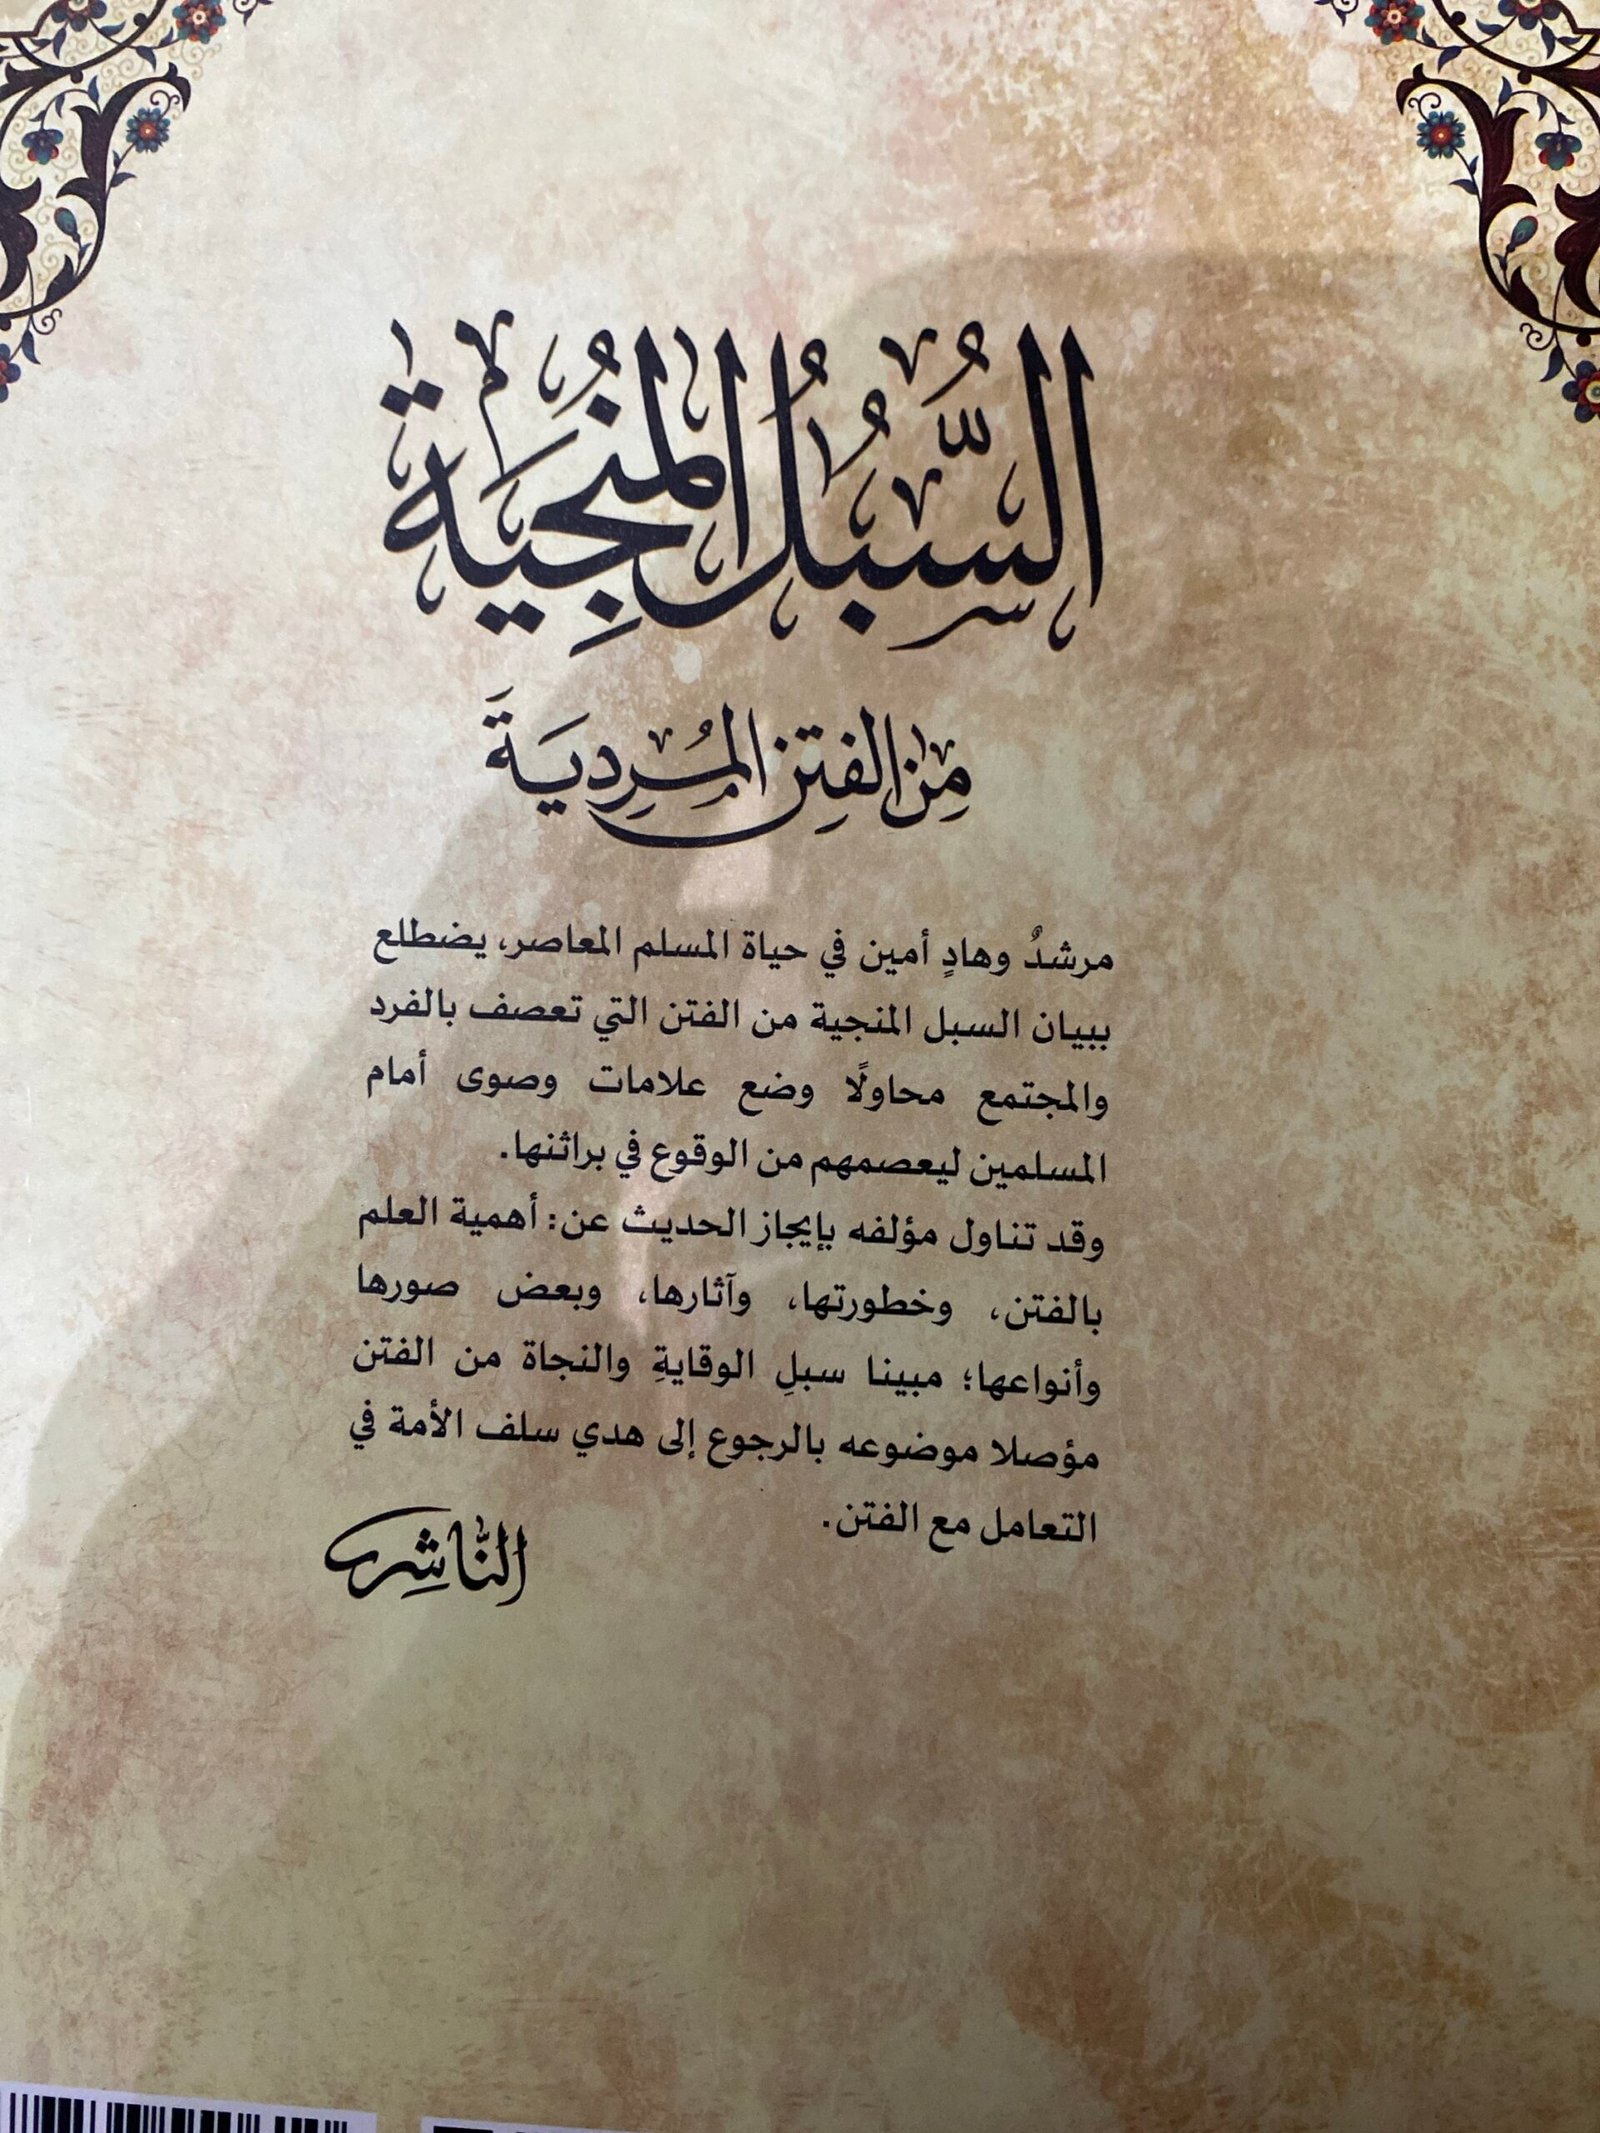 السُّبُلُ المُنْجِيَةُ
مِنَ الفِتَنِ المُرْدِيَةَ
مرشدٌ وهادٍ أمين في حياة المسلم المعاصر، يضطلع
ببيان السبل المنجية من الفتن التي تعصف بالفرد
والمجتمع محاولًا وضع علامات وصوى أمام
المسلمين ليعصمهم من الوقوع في براثنها.
وقد تناول مؤلفه بإيجاز الحديث عن: أهمية العلم
بالفتن، وخطورتها، وآثارها، وبعض صورها
وأنواعها؛ مبينا سبلِ الوقايةِ والنجاة من الفتن
مؤصلا موضوعه بالرجوع إلى هدي سلف الأمة في
التعامل مع الفتن.
النَّاشِر